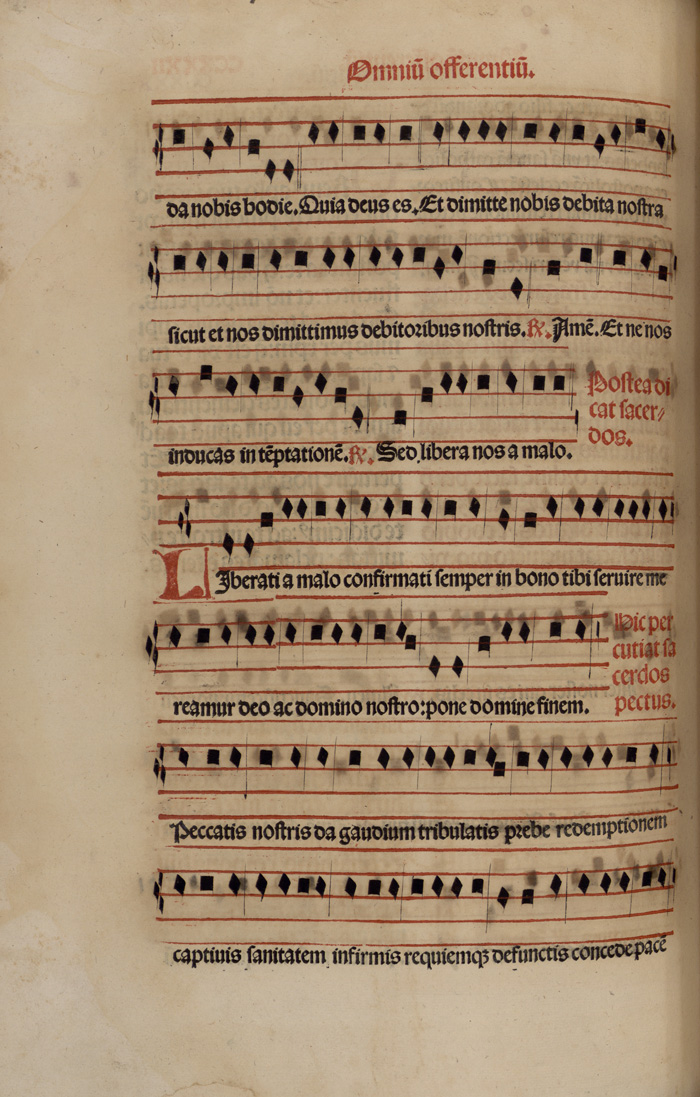 Omniū offerentiū.
da nobis hodie. Quia deus es. Et dimitte nobis debita nostra
sicut et nos dimittimus debitoribus nostris. ℟. Amē. Et ne nos
inducas in tēptationē. ℟. Sed libera nos a malo.
Postea di
cat sacer/
dos.
LIberati a malo confirmati semper in bono tibi seruire me
reamur deo ac domino nostro: pone domine finem.
Hic per
cutiat sa
cerdos
pectus.
Peccatis nostris da gaudium tribulatis prebe redemptionem
captiuis sanitatem infirmis requiemqꝫ defunctis concede pacē